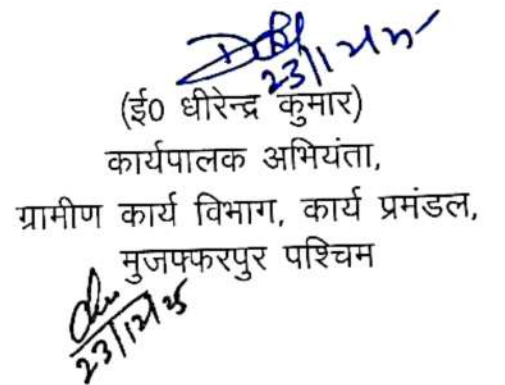 23/12/25
(ई० धीरेन्द्र कुमार)
कार्यपालक अभियंता,
ग्रामीण कार्य विभाग, कार्य प्रमंडल,
मुजफ्फरपुर पश्चिम
23/12/25